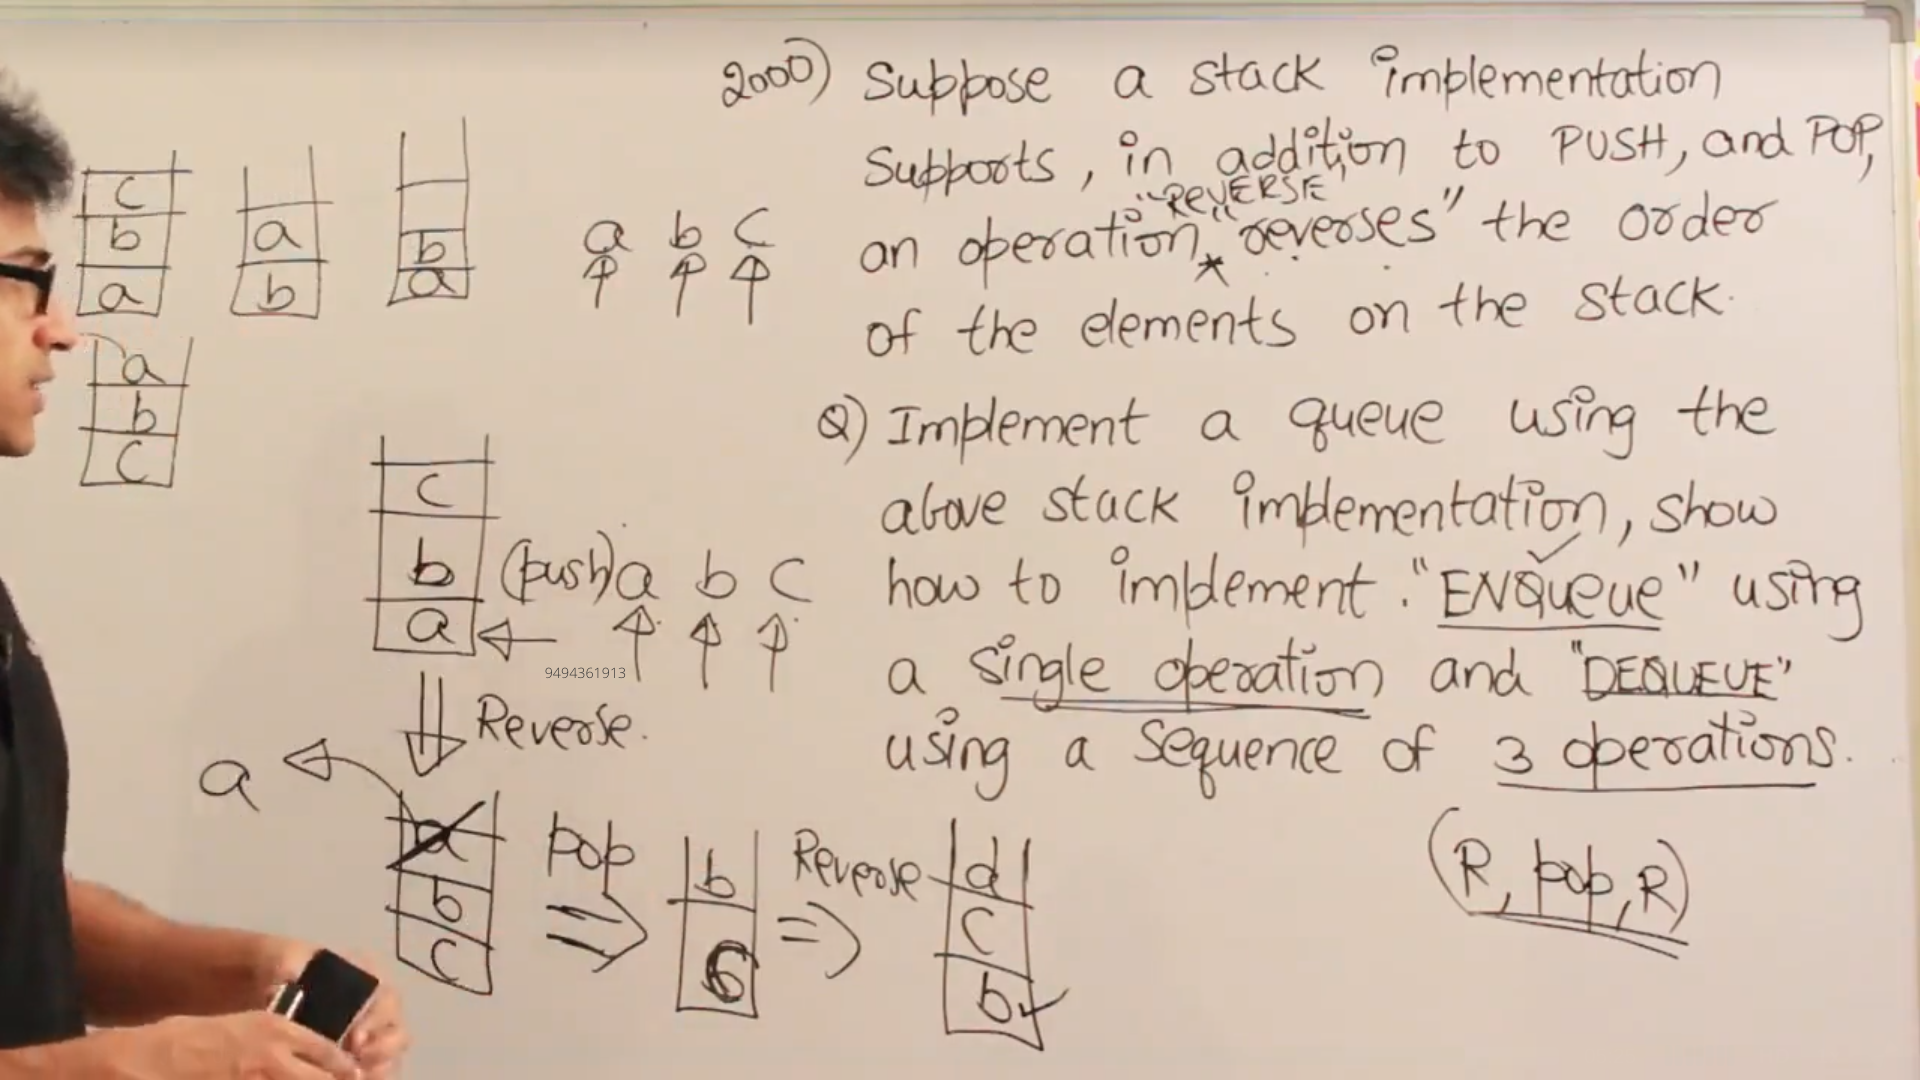 2000) Suppose a stack implementation
Supports, in addition to PUSH, and POP,
"REVERSE"
an operation "reverses" the order
of the elements on the stack.
Q) Implement a queue using the
above stack implementation, show
how to implement "ENQueue" using
a single operation and "DEQUEUE"
using a sequence of 3 operations.
(R, pop, R)
c
b
a
a
b
b
a
a b c
a
b
c
c
b
a
(push) a b c
9494361913
Reverse.
a
a
b
c
pop
b
Reverse
d
c
b